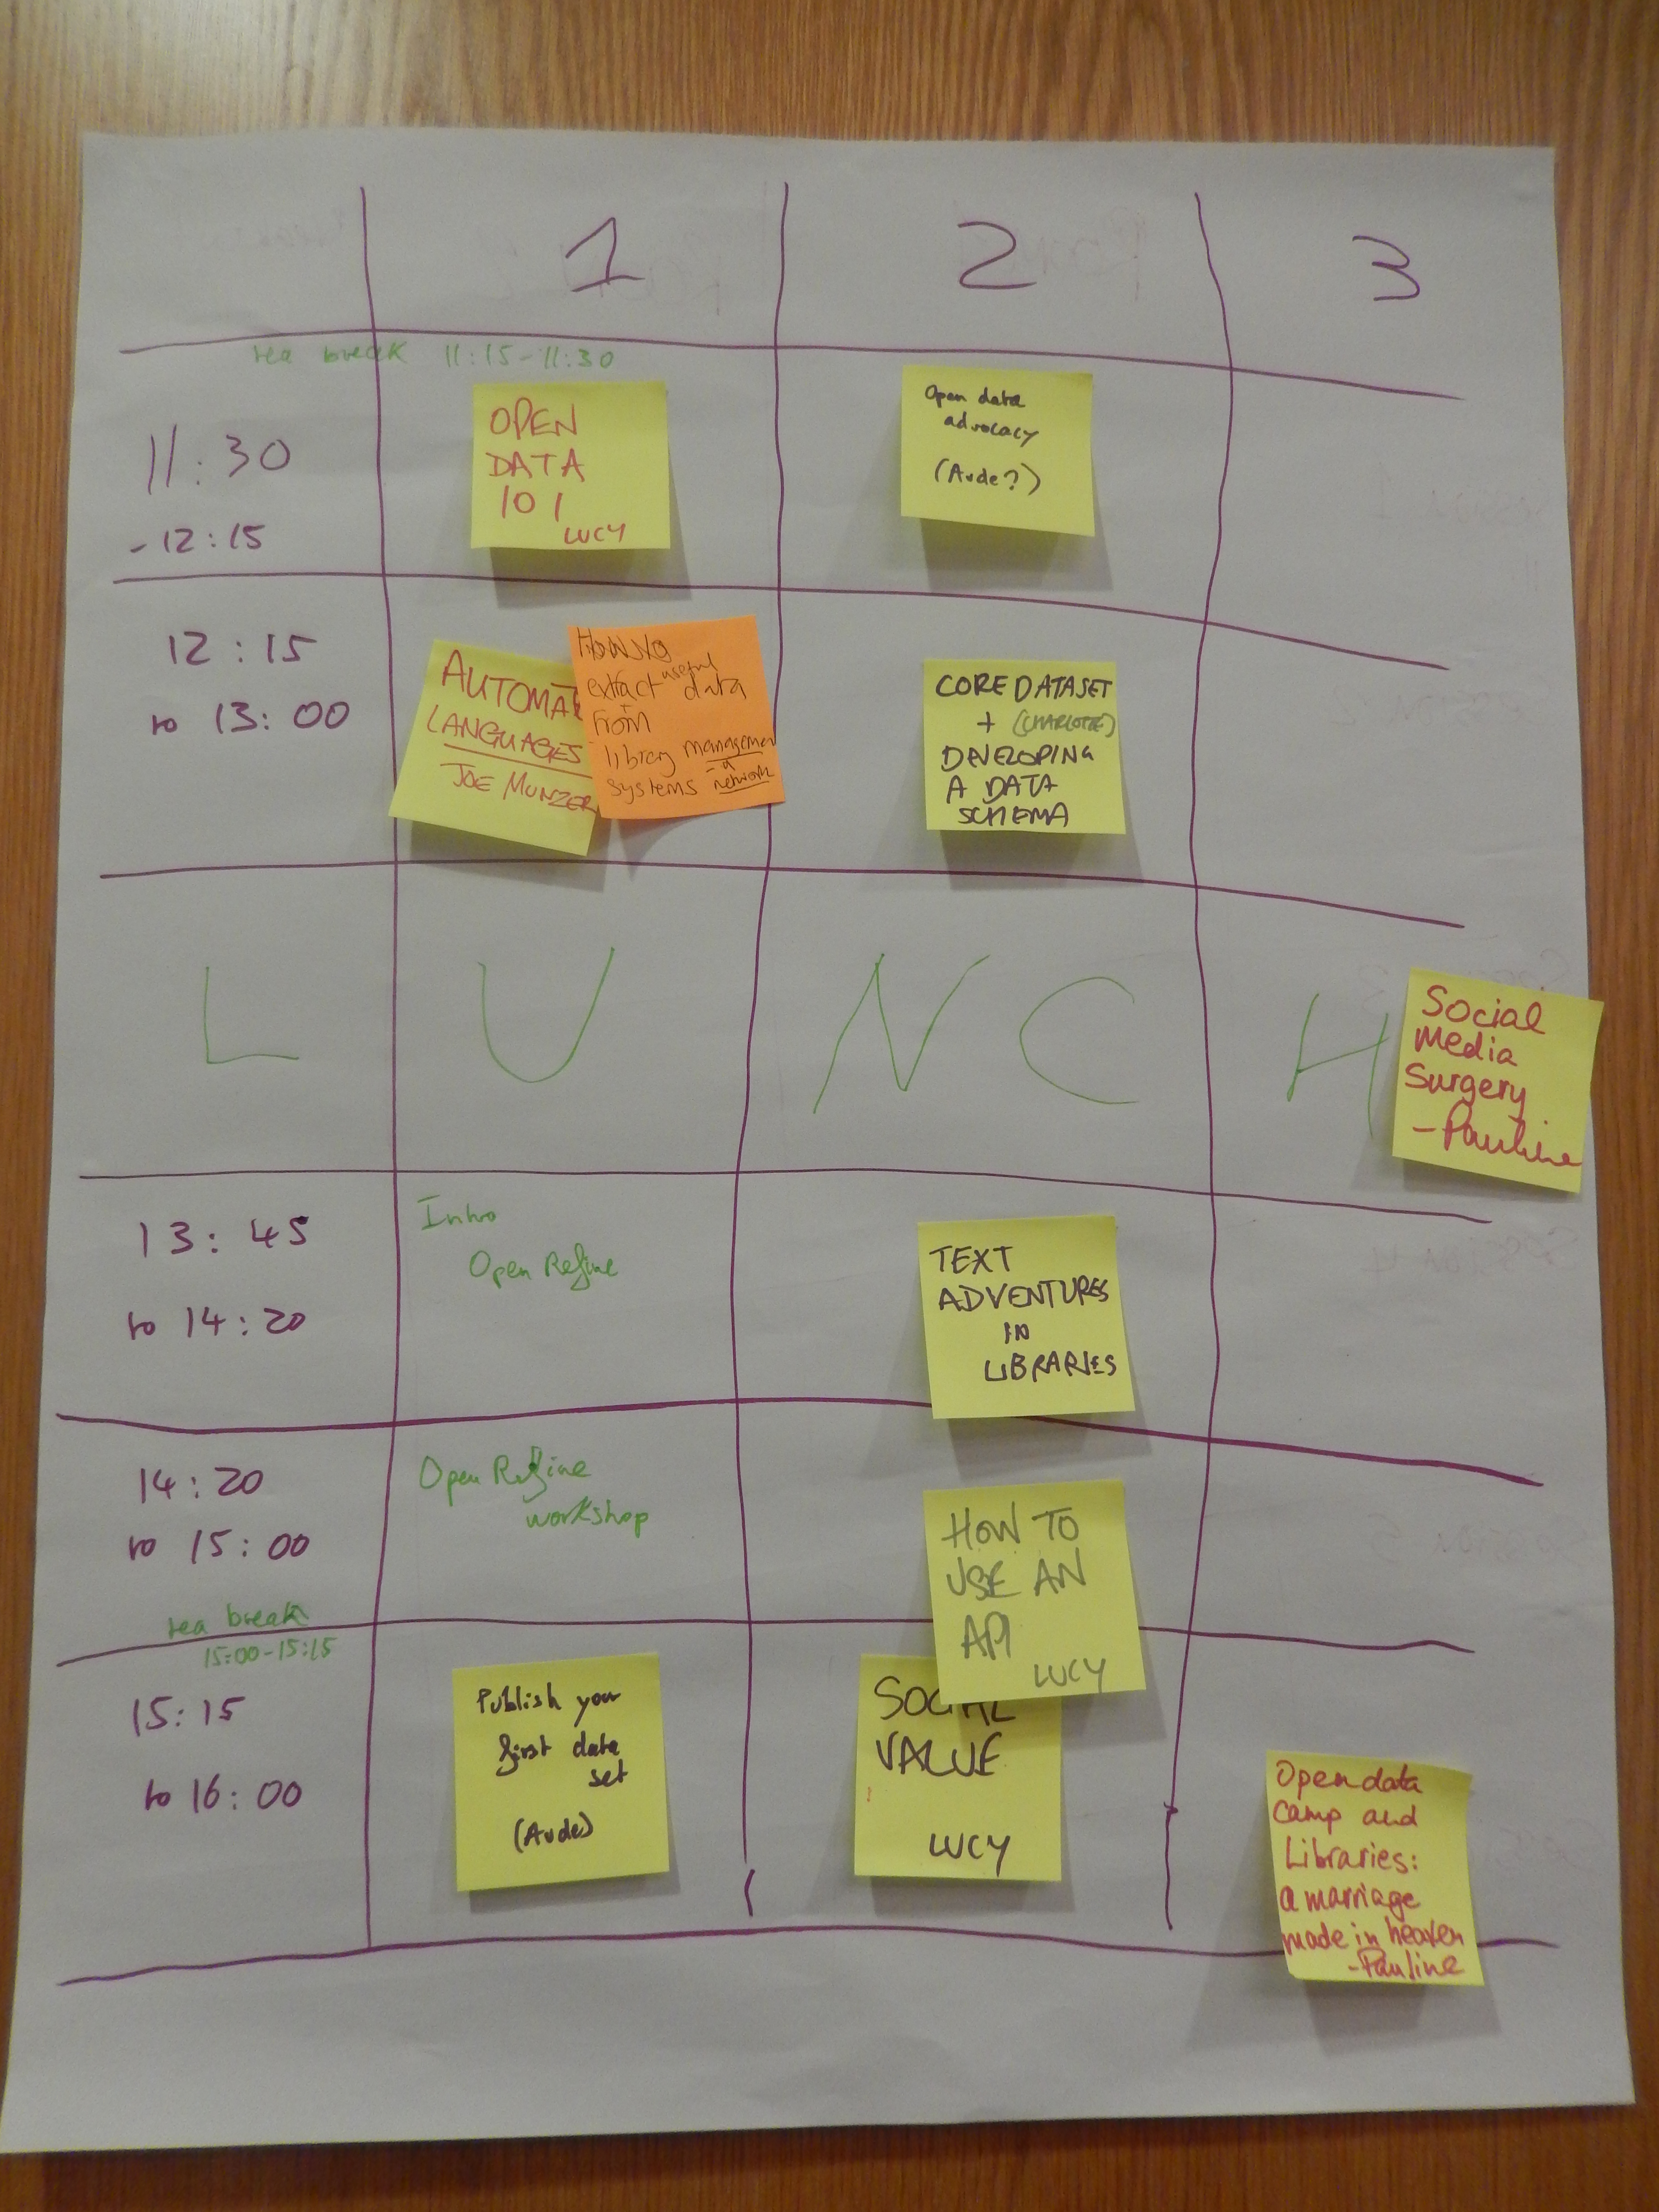 1 2 3
tea break 11:15-11:30
11:30
-12:15
OPEN
DATA
101
LUCY
Open data
advocacy
(Aude?)
12:15
to 13:00
AUTOMAT
LANGUAGES
JOE MUNZER
How to
extract useful data
from
library management
systems + a network
CORE DATASET
+ (CHARLOTTE)
DEVELOPING
A DATA
SCHEMA
LUNCH
Social
Media
Surgery
-Pauline
13:45
to 14:20
Intro
Open Refine
TEXT
ADVENTURES
IN
LIBRARIES
14:20
to 15:00
Open Refine
workshop
HOW TO
USE AN
API
LUCY
tea break
15:00-15:15
15:15
to 16:00
Publish your
first data
set
(Aude)
SOCIAL
VALUE
LUCY
Open data
camp and
Libraries:
a marriage
made in heaven
-Pauline